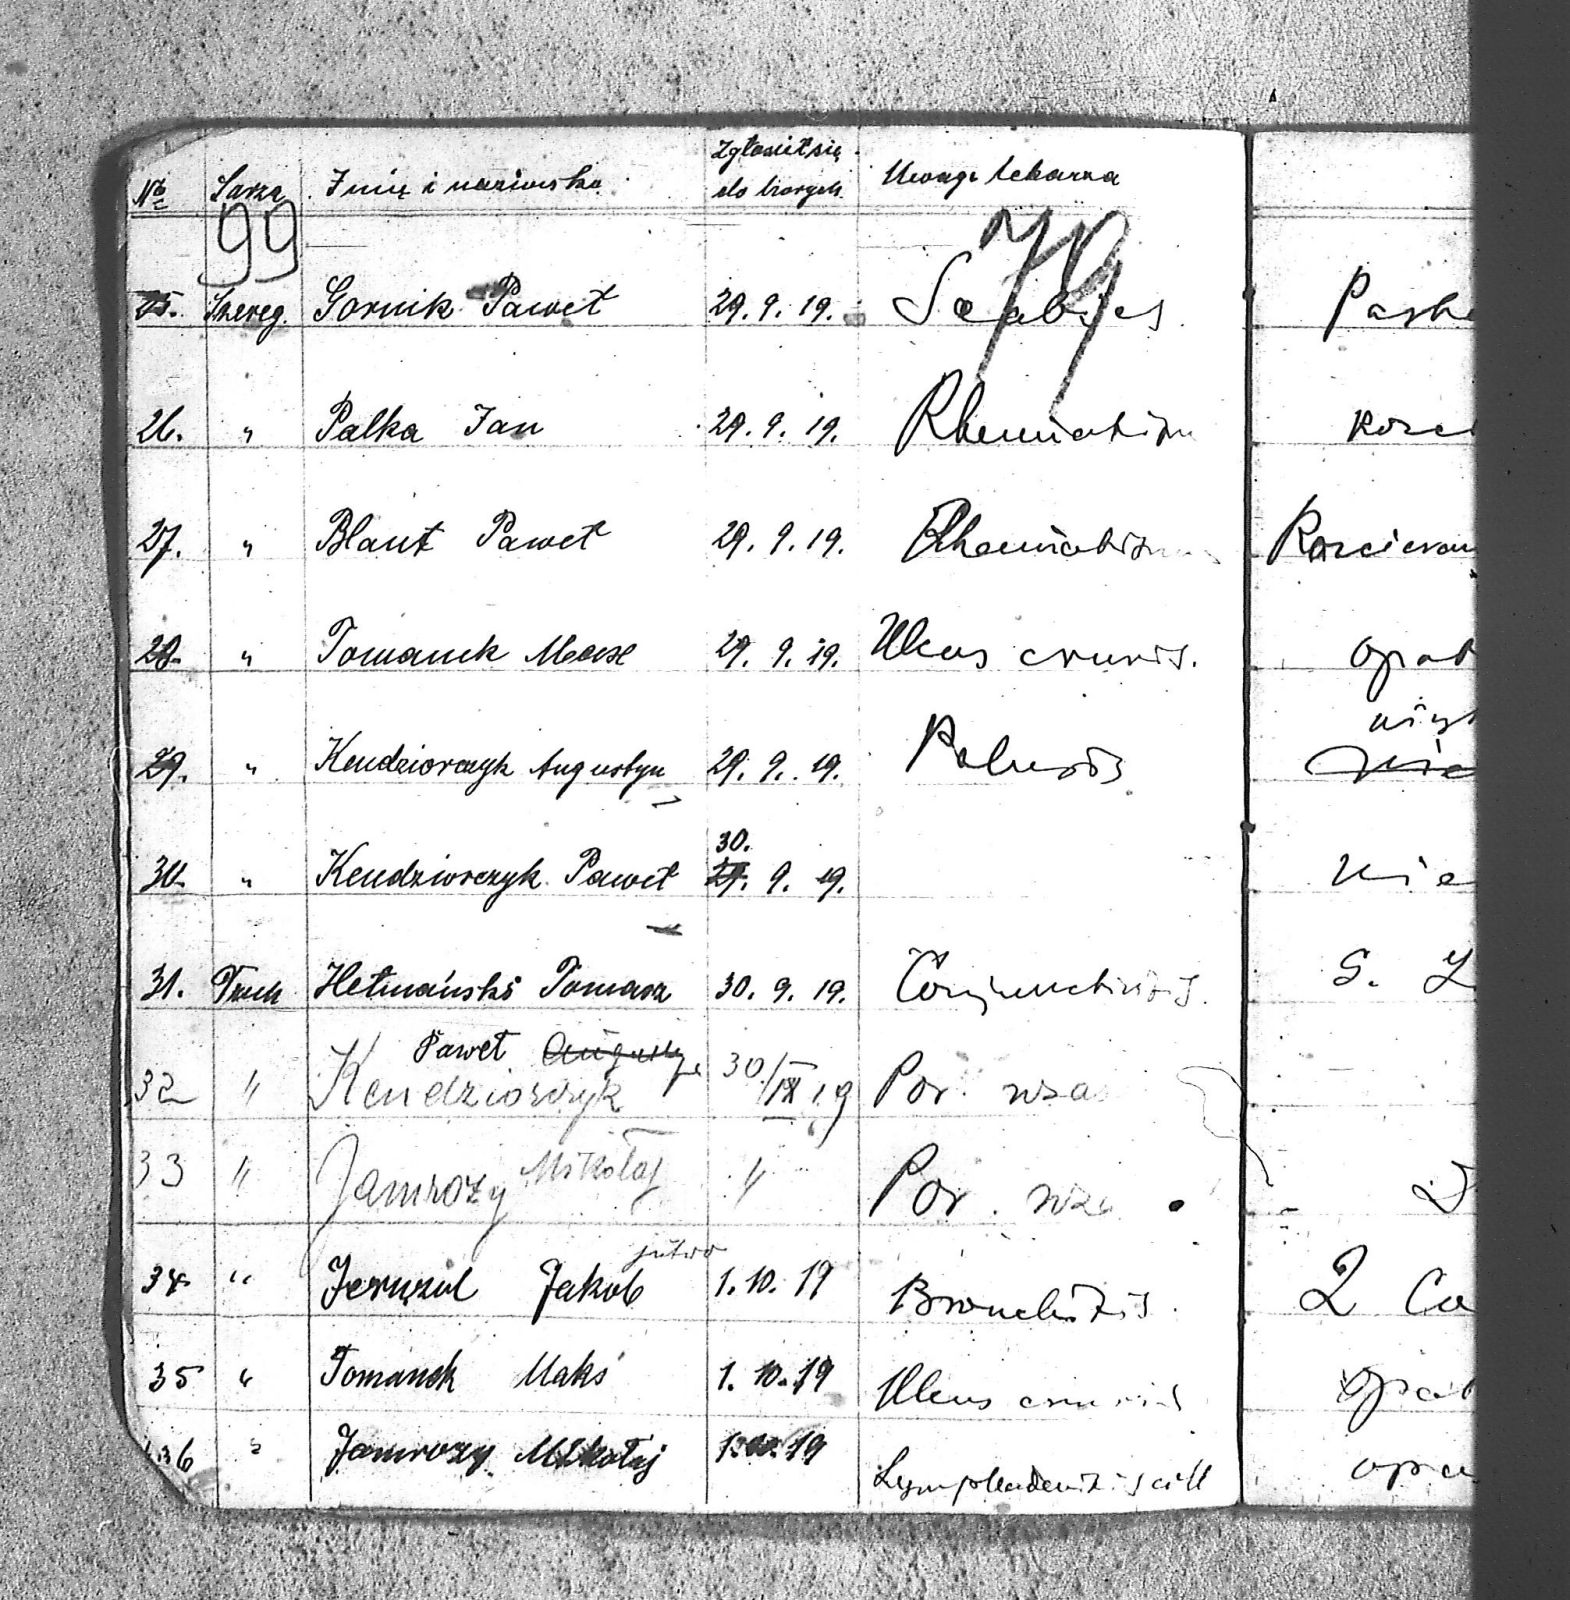 No Szarża Imię i nazwisko Zgłosił się do chorych Uwagi lekarza
99 79
25. Szereg. Gornik Paweł 29. 9. 19. Scabies
26. " Palka Jan 29. 9. 19. Rheumatism
27. " Blaut Paweł 29. 9. 19. Rheumatism
28. " Tomanek Max 29. 9. 19. Ulcus cruris. opat
29. " Kendziorczyk Augustyn 29. 9. 19.
30. " Kendziorczyk Paweł 30. 29. 9. 19. nie
31. Hetmański Tomasz 30. 9. 19. Conjunctivitis. S. Z
32 " Kendziorczyk Paweł Augustyn 30/IX 19 Por.
33 " Jamrozy Mikołaj " Por.
34 " Jakob jutro 1. 10. 19 Bronchitis. 2 Ca
35 " Tomanek Maks 1. 10. 19 Ulcus cruris opat
36 " Jamrozy Mikołaj 1. 10. 19 Lymphadenitis coll opa